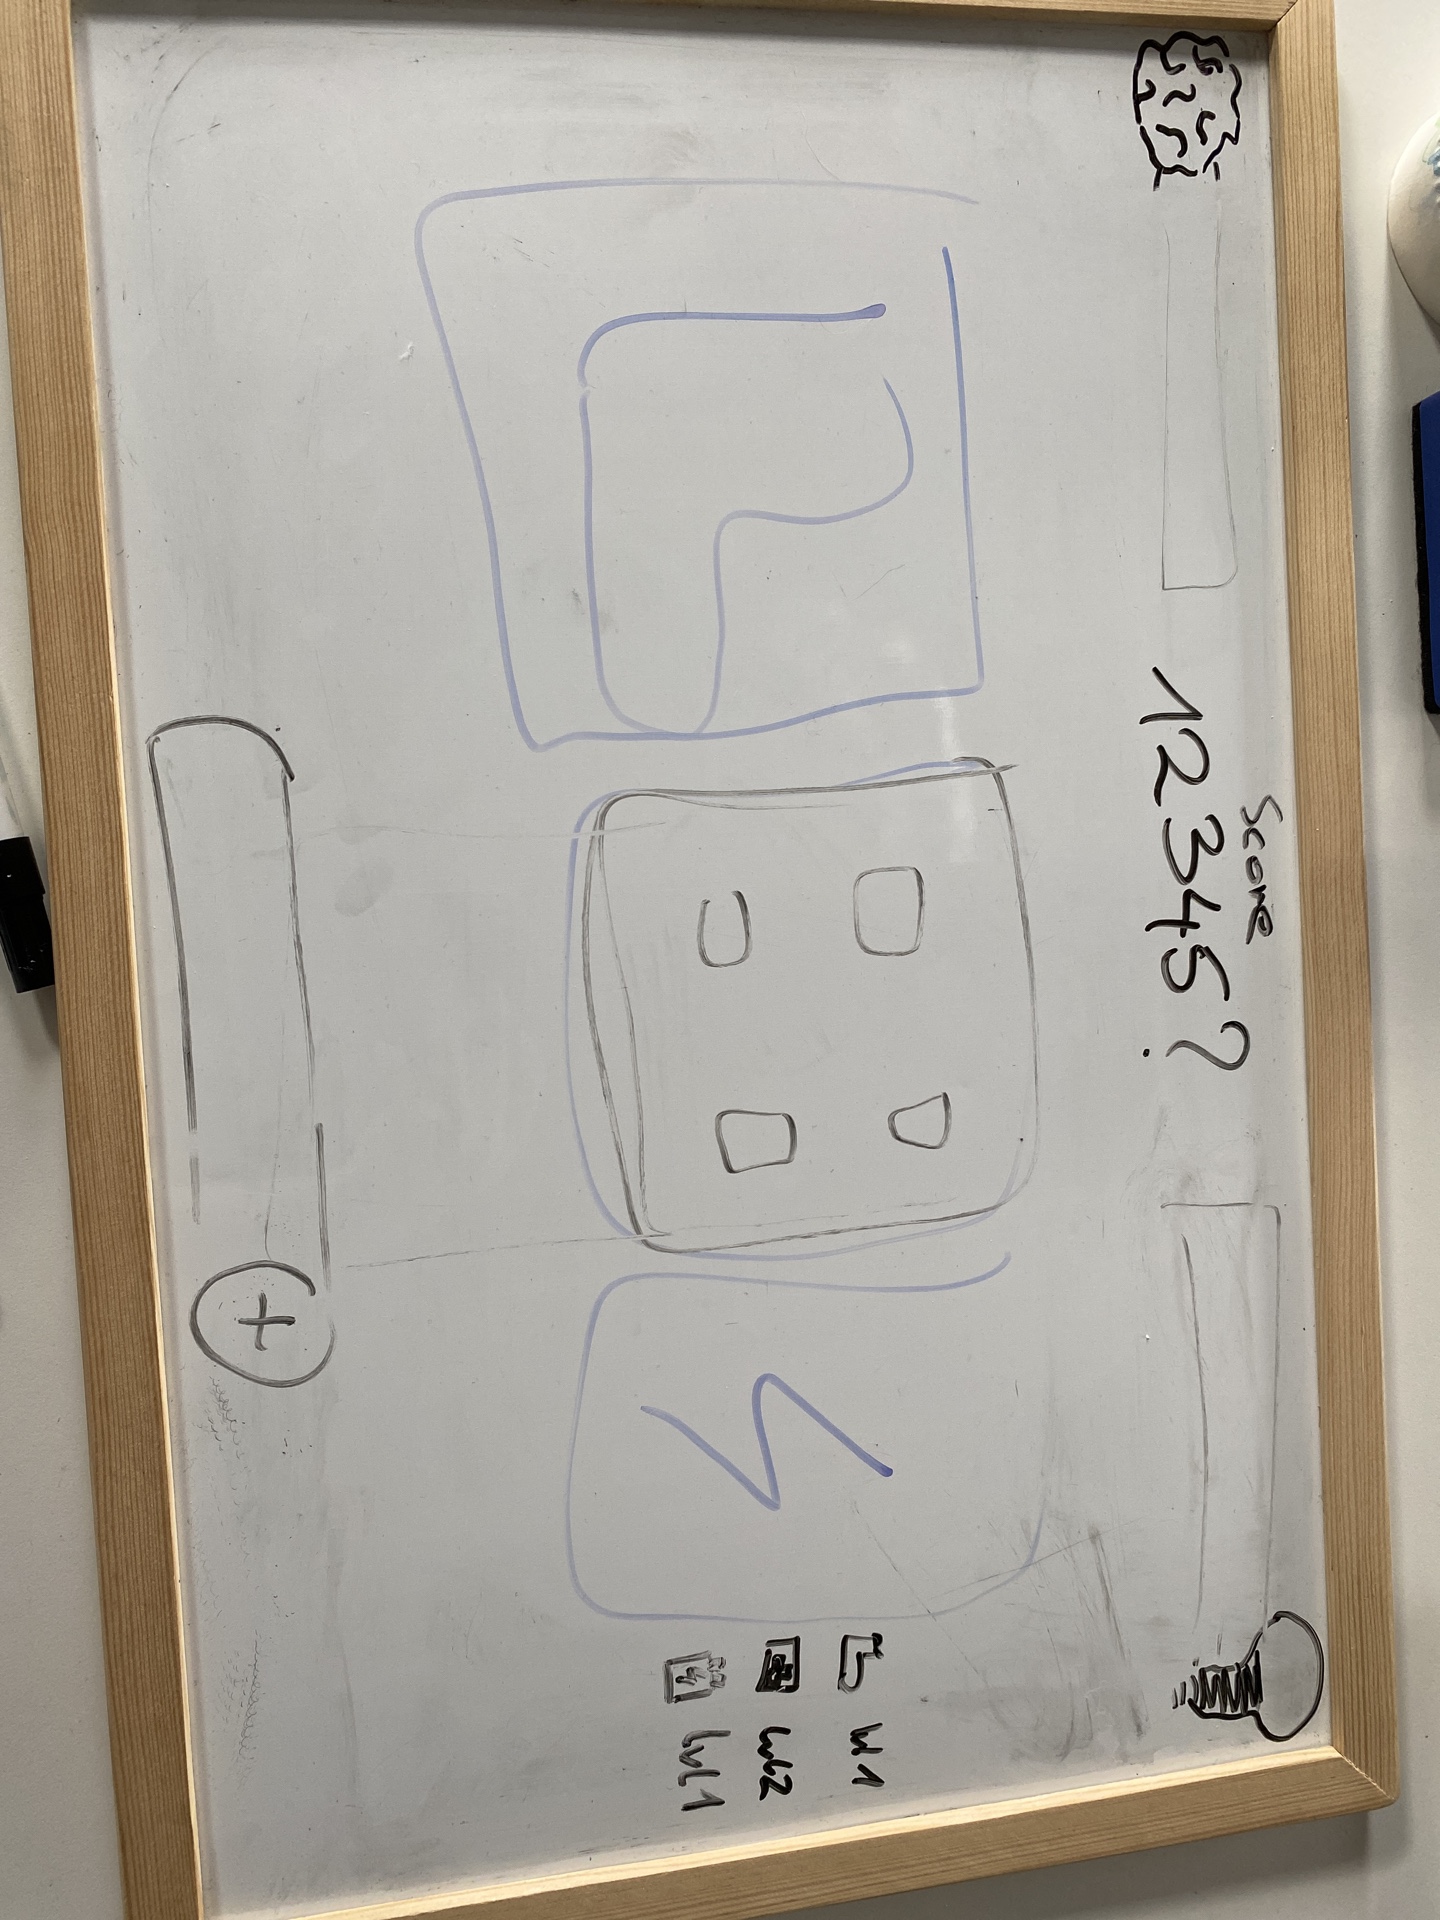 Score
12345?
lvl 1
lvl 2
lvl 1
+